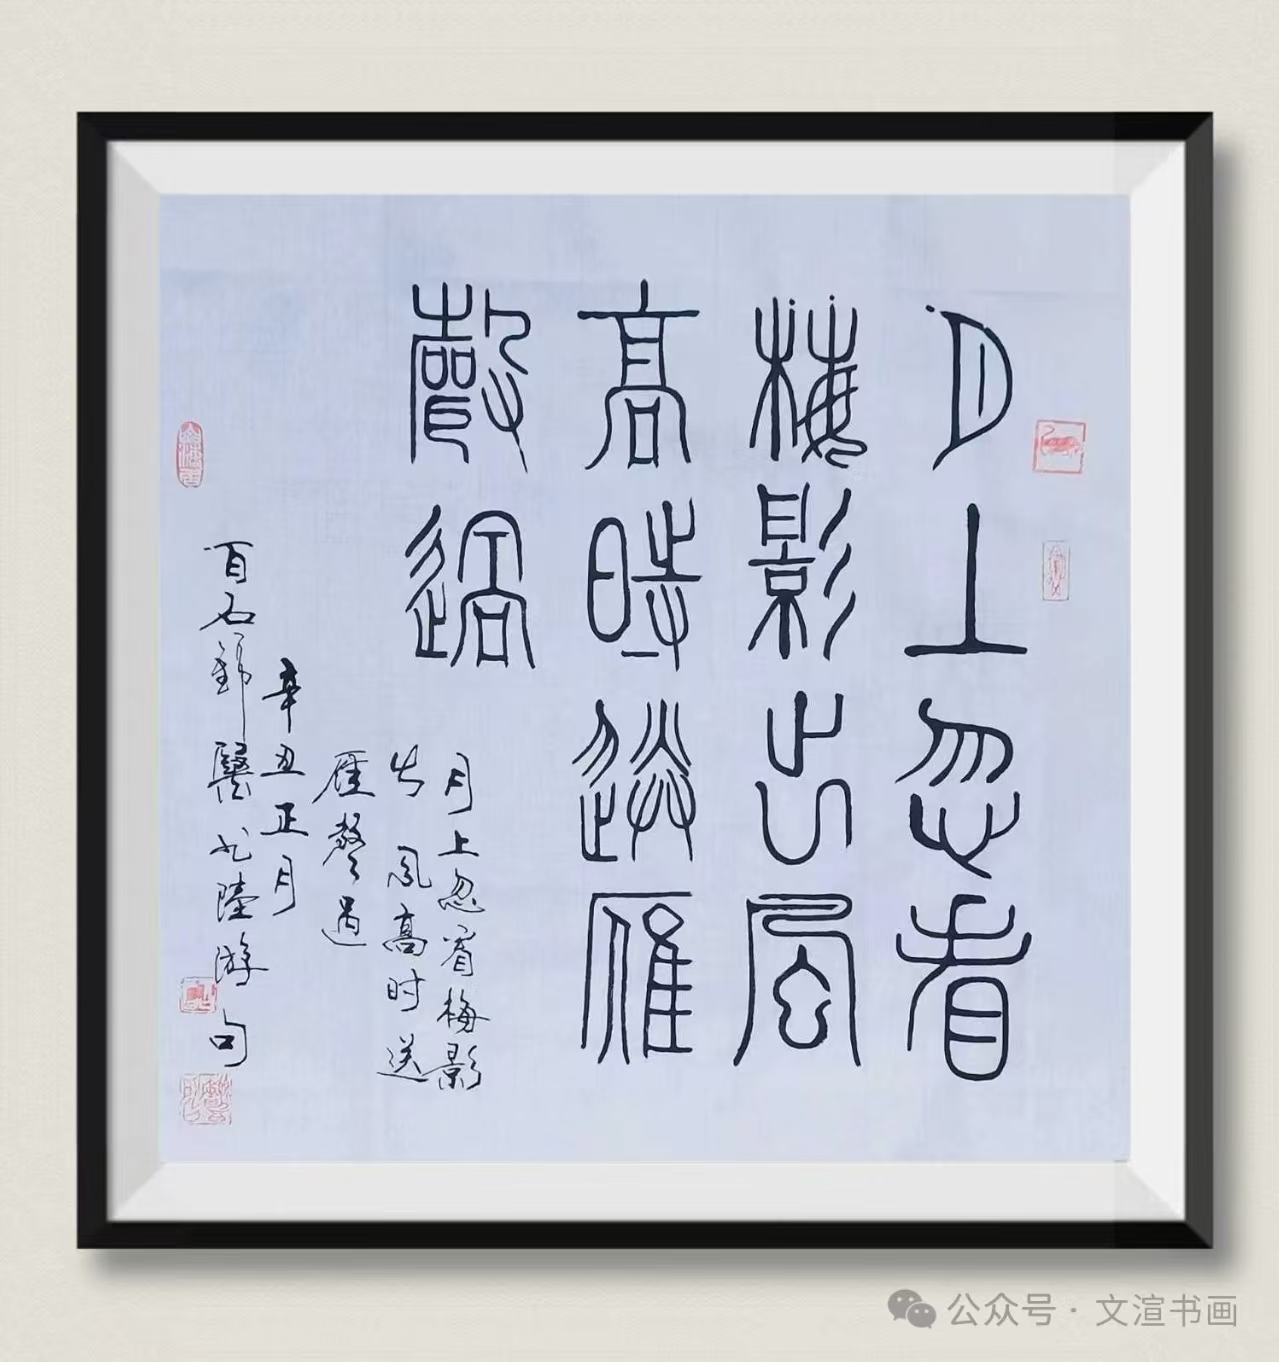 月上忽看
梅影出風
高時送雁
聲過
月上忽看梅影
出風高時送
雁聲過
辛丑正月
百石錦龔書陸游句
公众号·文渲书画